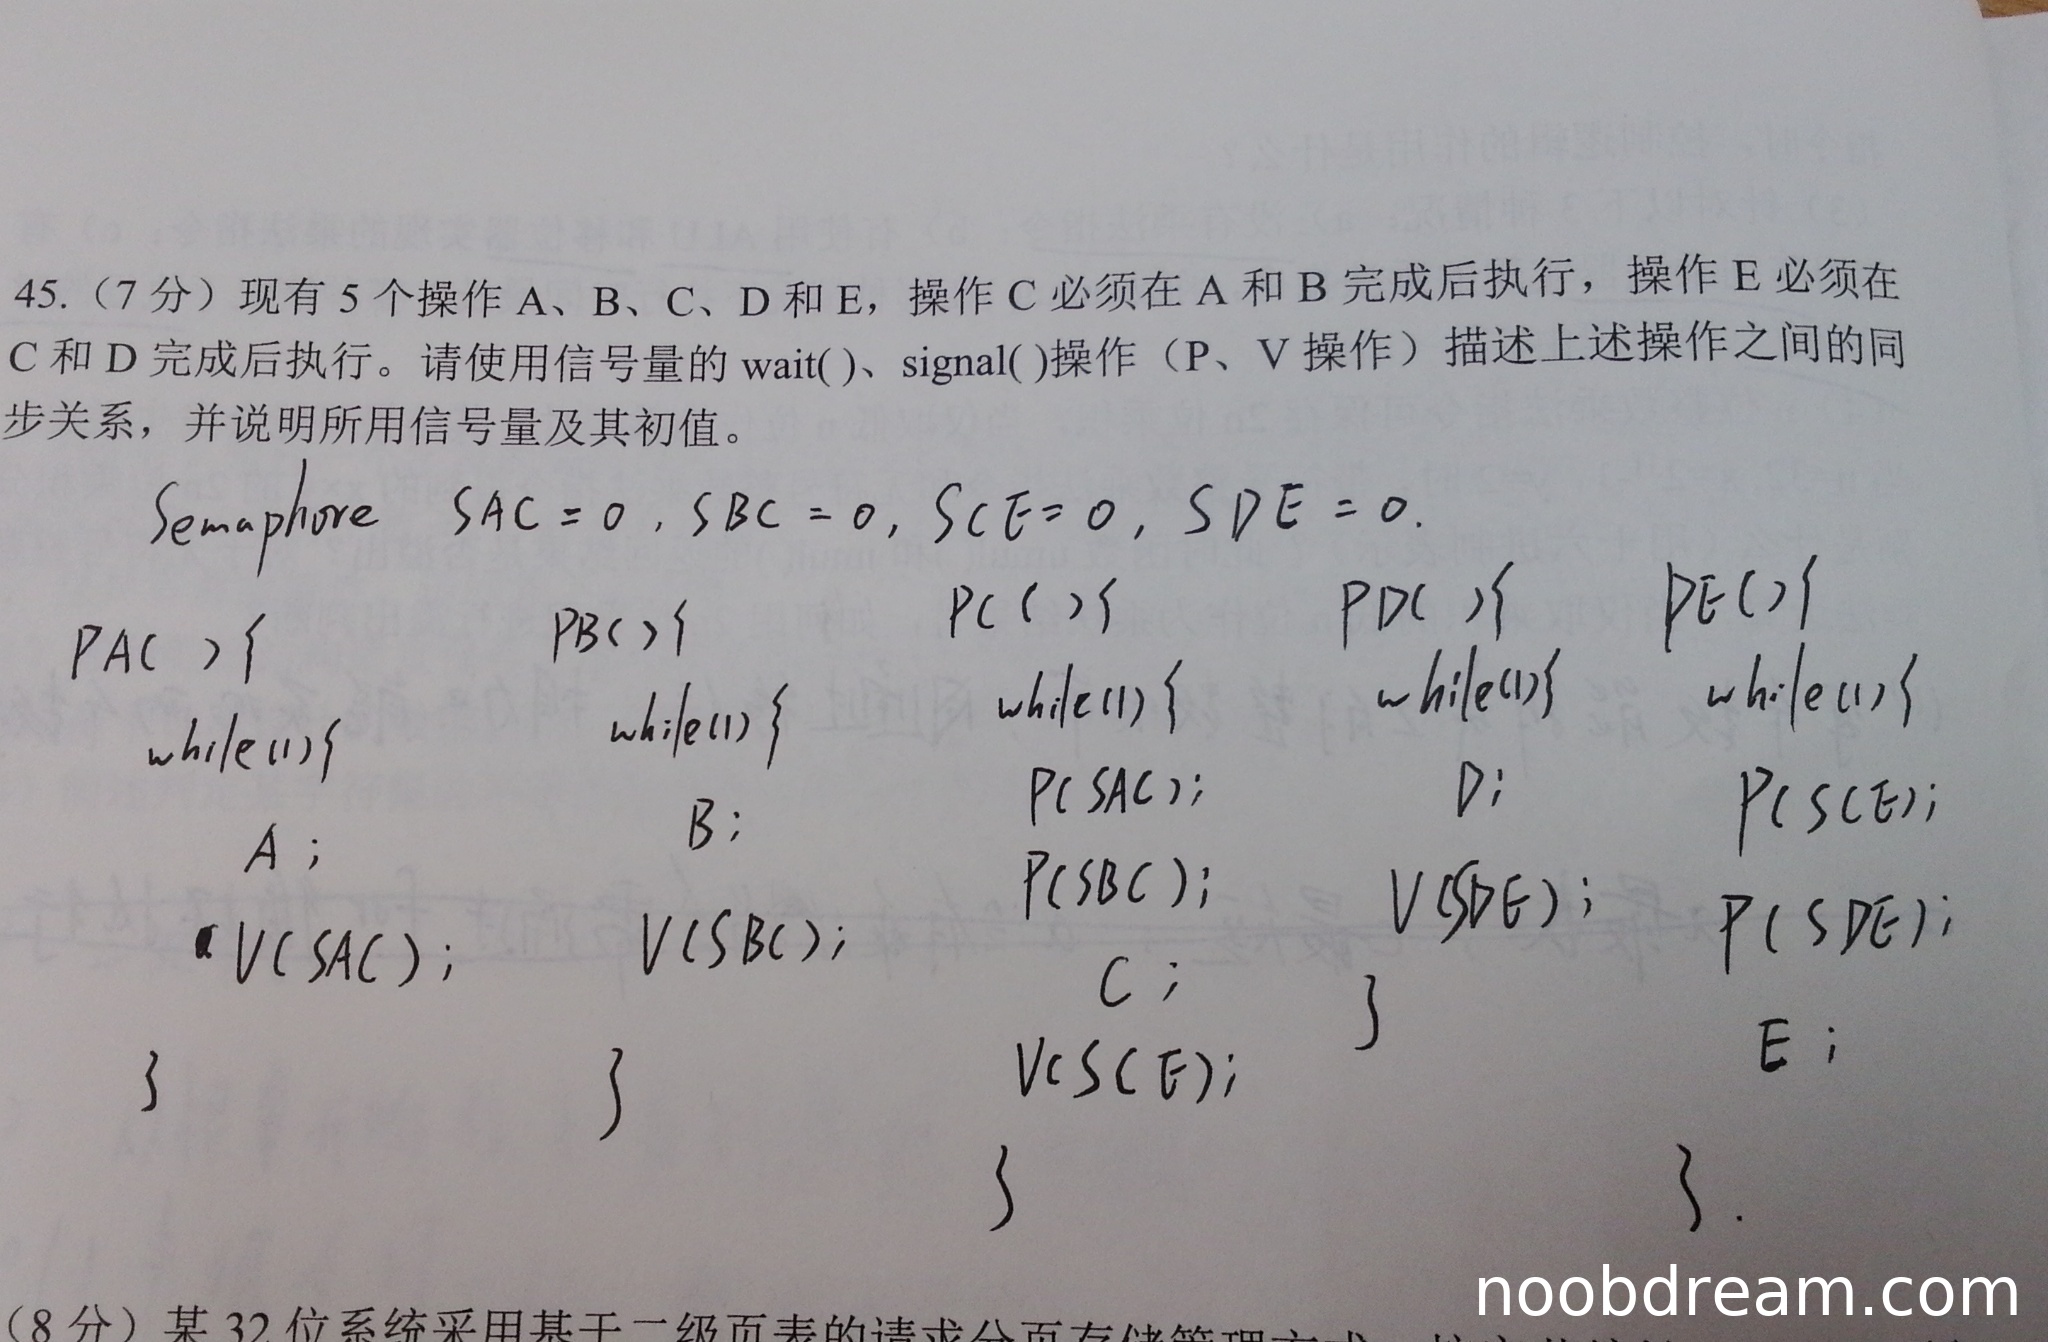 45.（7 分）现有 5 个操作 A、B、C、D 和 E，操作 C 必须在 A 和 B 完成后执行，操作 E 必须在
C 和 D 完成后执行。请使用信号量的 wait( )、signal( )操作（P、V 操作）描述上述操作之间的同
步关系，并说明所用信号量及其初值。
Semaphore SAC = 0 , SBC = 0, SCE = 0, SDE = 0.
PA( ){
while(1){
A ;
V(SAC) ;
}
PB( ){
while(1){
B ;
V(SBC) ;
}
PC( ){
while(1){
P(SAC) ;
P(SBC) ;
C ;
V(SCE) ;
}
PD( ){
while(1){
D ;
V(SDE) ;
}
PE( ){
while(1){
P(SCE) ;
P(SDE) ;
E ;
} .
（8 分）某 32 位系统采用基于二级页表的请求分页存储管理方式
noobdream.com